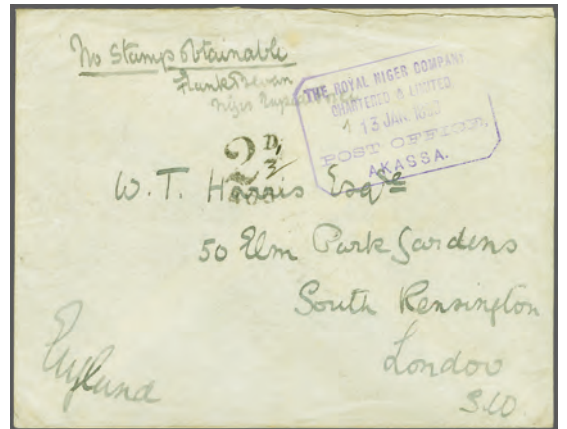 No Stamp Obtainable
Frank Bevan
Niger
THE ROYAL NIGER COMPANY
CHARTERED & LIMITED
13 JAN
POST OFFICE,
AKASSA.
2D
W. T. Harris Esqre
50 Elm Park Gardens
South Kensington
London
S.W.
England